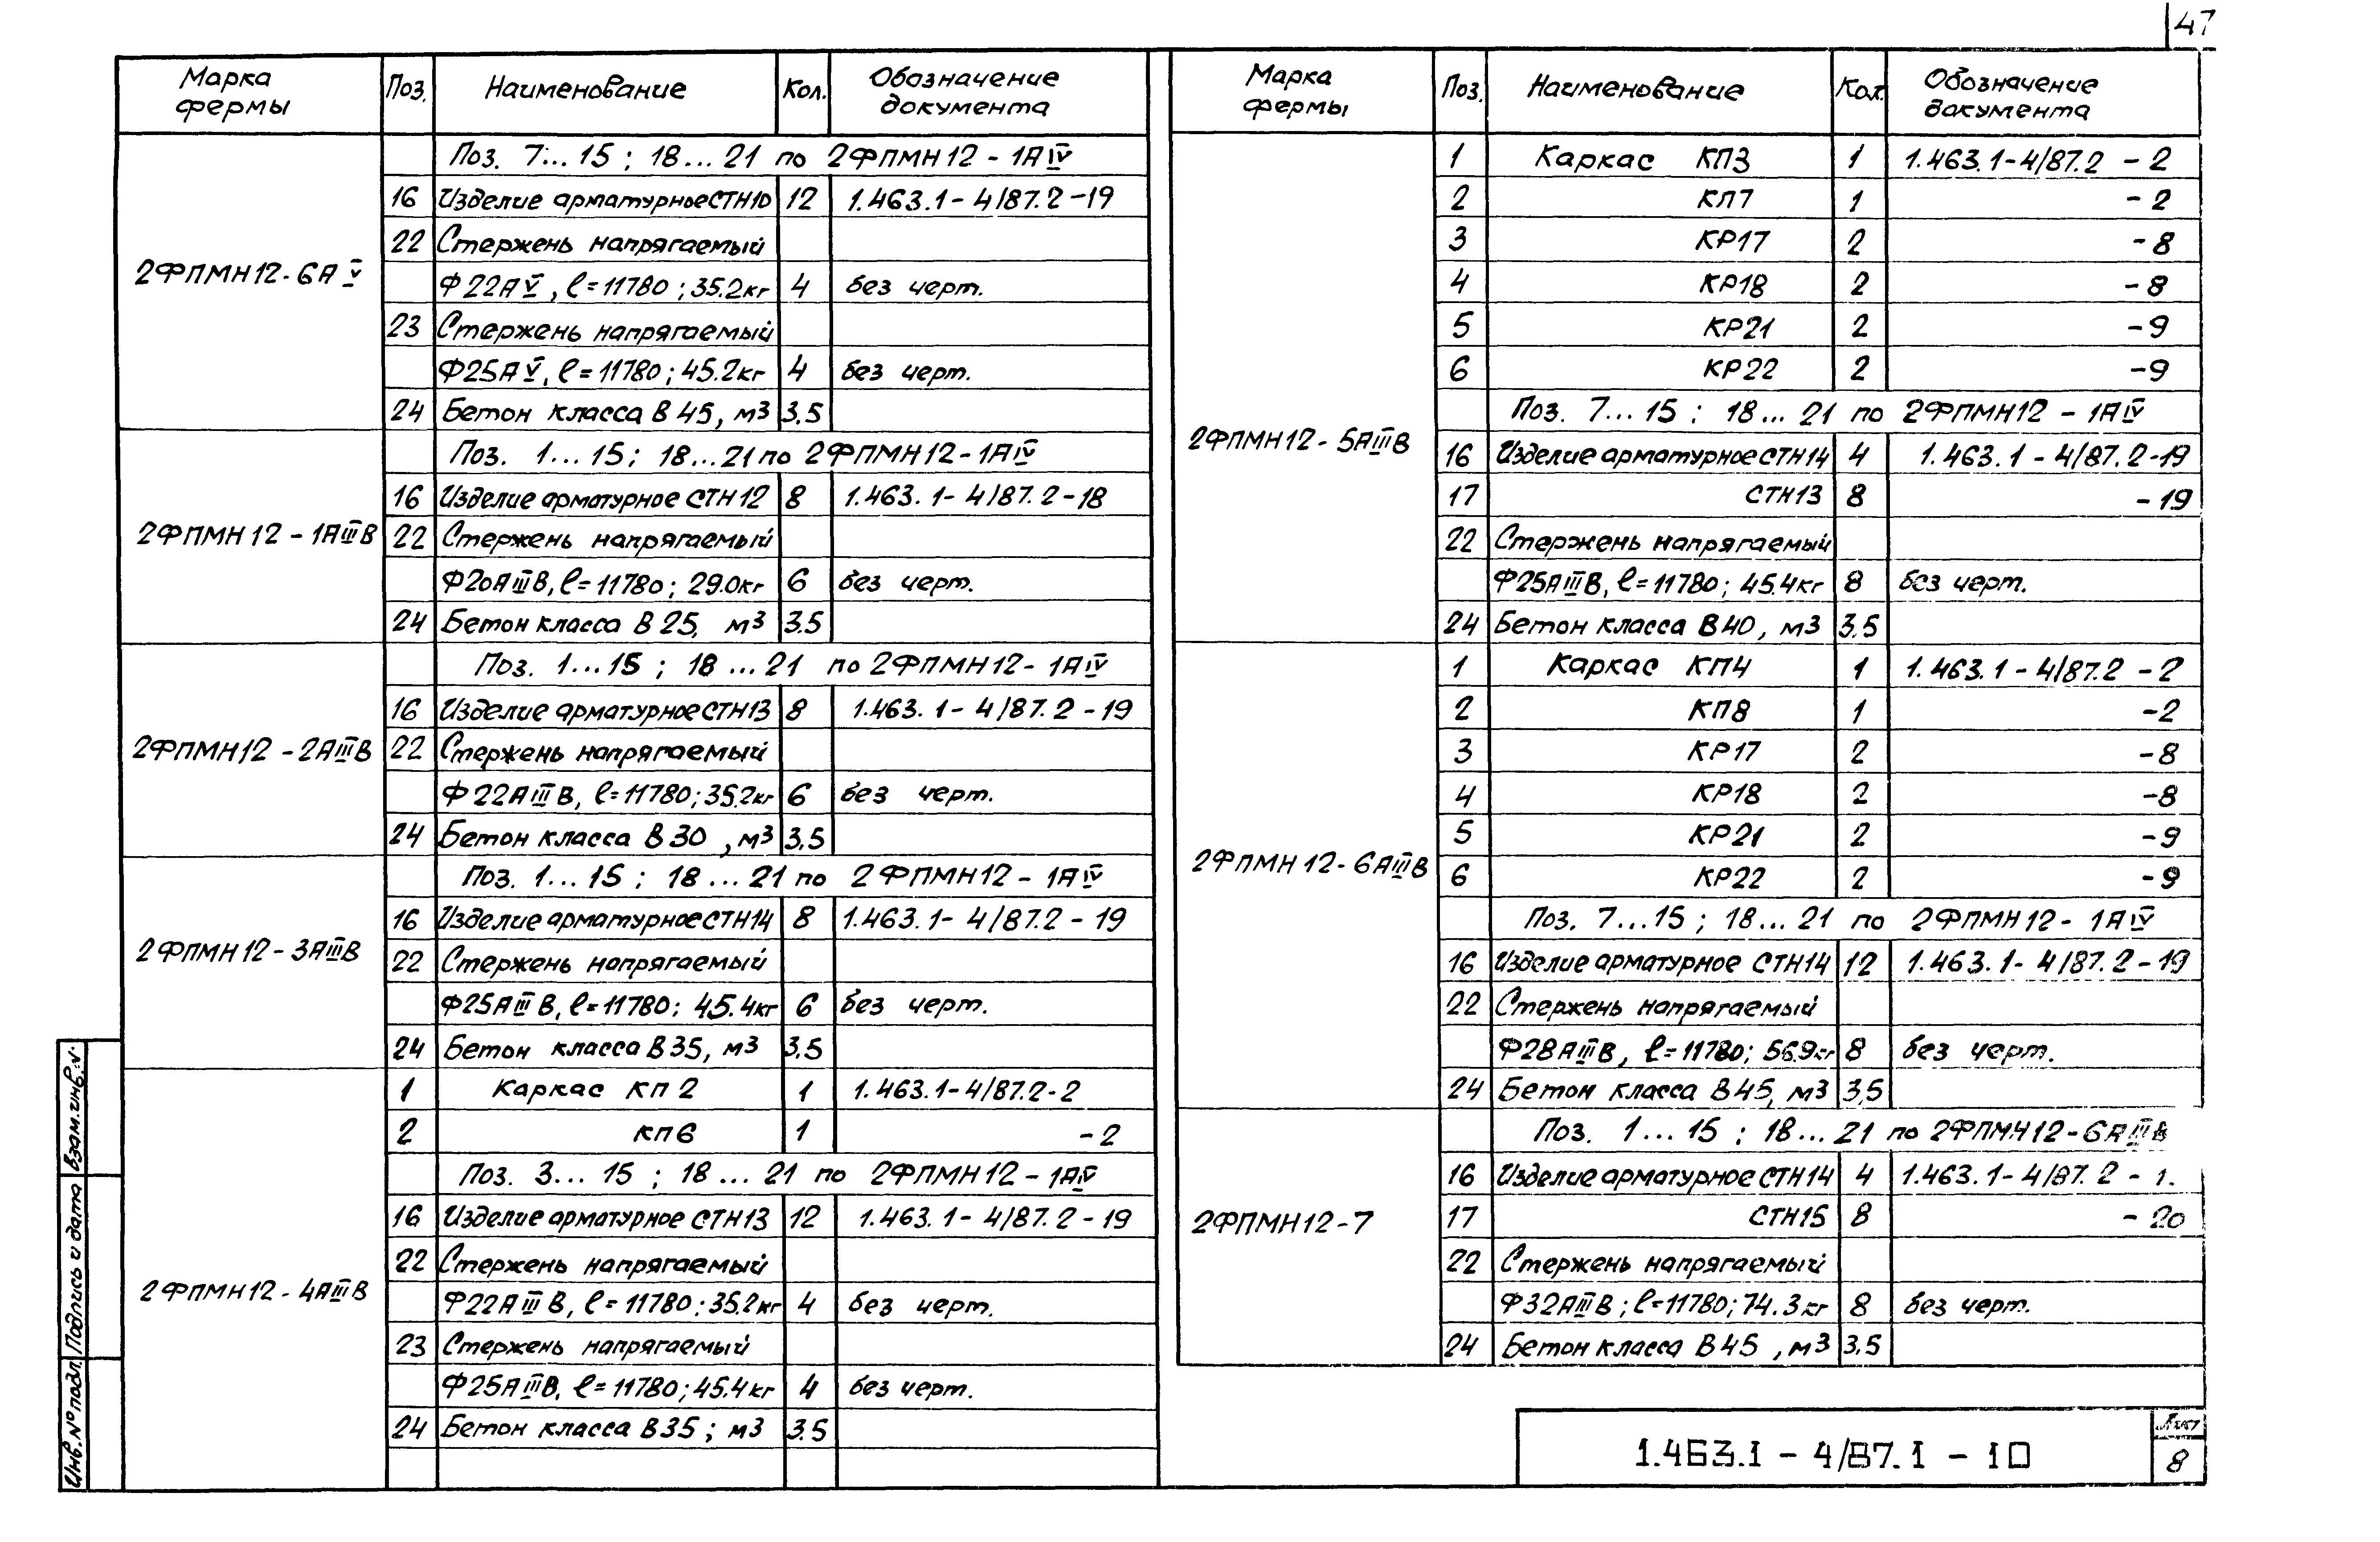 47
Марка фермы Поз. Наименование Кол. Обозначение документа
Поз. 7...15; 18...21 по 2ФПМН12-1АIV
2ФПМН12-6АV
16 Изделие арматурное СТН10 12 1.463.1-4/87.2-19
22 Стержень напрягаемый
Ф22АV, ℓ=11780; 35.2кг 4 без черт.
23 Стержень напрягаемый
Ф25АV, ℓ=11780; 45.2кг 4 без черт.
24 Бетон класса В45, м3 3.5
Поз. 1...15; 18...21 по 2ФПМН12-1АIV
2ФПМН12-1АIIIВ
16 Изделие арматурное СТН12 8 1.463.1-4/87.2-18
22 Стержень напрягаемый
Ф20АIIIВ, ℓ=11780; 29.0кг 6 без черт.
24 Бетон класса В25, м3 3.5
Поз. 1...15; 18...21 по 2ФПМН12-1АIV
2ФПМН12-2АIIIВ
16 Изделие арматурное СТН13 8 1.463.1-4/87.2-19
22 Стержень напрягаемый
Ф22АIIIВ, ℓ=11780; 35.2кг 6 без черт.
24 Бетон класса В30, м3 3.5
Поз. 1...15; 18...21 по 2ФПМН12-1АIV
2ФПМН12-3АIIIВ
16 Изделие арматурное СТН14 8 1.463.1-4/87.2-19
22 Стержень напрягаемый
Ф25АIIIВ, ℓ=11780; 45.4кг 6 без черт.
24 Бетон класса В35, м3 3.5
2ФПМН12-4АIIIВ
1 Каркас КП2 1 1.463.1-4/87.2-2
2 КП6 1 -2
Поз. 3...15; 18...21 по 2ФПМН12-1АIV
16 Изделие арматурное СТН13 12 1.463.1-4/87.2-19
22 Стержень напрягаемый
Ф22АIIIВ, ℓ=11780; 35.2кг 4 без черт.
23 Стержень напрягаемый
Ф25АIIIВ, ℓ=11780; 45.4кг 4 без черт.
24 Бетон класса В35; м3 3.5
Марка фермы Поз. Наименование Кол. Обозначение документа
2ФПМН12-5АIIIВ
1 Каркас КП3 1 1.463.1-4/87.2 -2
2 КП7 1 -2
3 КР17 2 -8
4 КР18 2 -8
5 КР21 2 -9
6 КР22 2 -9
Поз. 7...15; 18...21 по 2ФПМН12-1АIV
16 Изделие арматурное СТН14 4 1.463.1-4/87.2-19
17 СТН13 8 -19
22 Стержень напрягаемый
Ф25АIIIВ, ℓ=11780; 45.4кг 8 без черт.
24 Бетон класса В40, м3 3.5
2ФПМН12-6АIIIВ
1 Каркас КП4 1 1.463.1-4/87.2 -2
2 КП8 1 -2
3 КР17 2 -8
4 КР18 2 -8
5 КР21 2 -9
6 КР22 2 -9
Поз. 7...15; 18...21 по 2ФПМН12-1АIV
16 Изделие арматурное СТН14 12 1.463.1-4/87.2-19
22 Стержень напрягаемый
Ф28АIIIВ, ℓ=11780; 56.9кг 8 без черт.
24 Бетон класса В45, м3 3.5
Поз. 1...15; 18...21 по 2ФПМН12-6АIIIВ
2ФПМН12-7
16 Изделие арматурное СТН14 4 1.463.1-4/87.2 -
17 СТН15 8 -20
22 Стержень напрягаемый
Ф32АIIIВ; ℓ=11780; 74.3кг 8 без черт.
24 Бетон класса В45, м3 3.5
1.463.1-4/87.1-10
Лист
8
Инв.№ подл. Подпись и дата Взам.инв.№